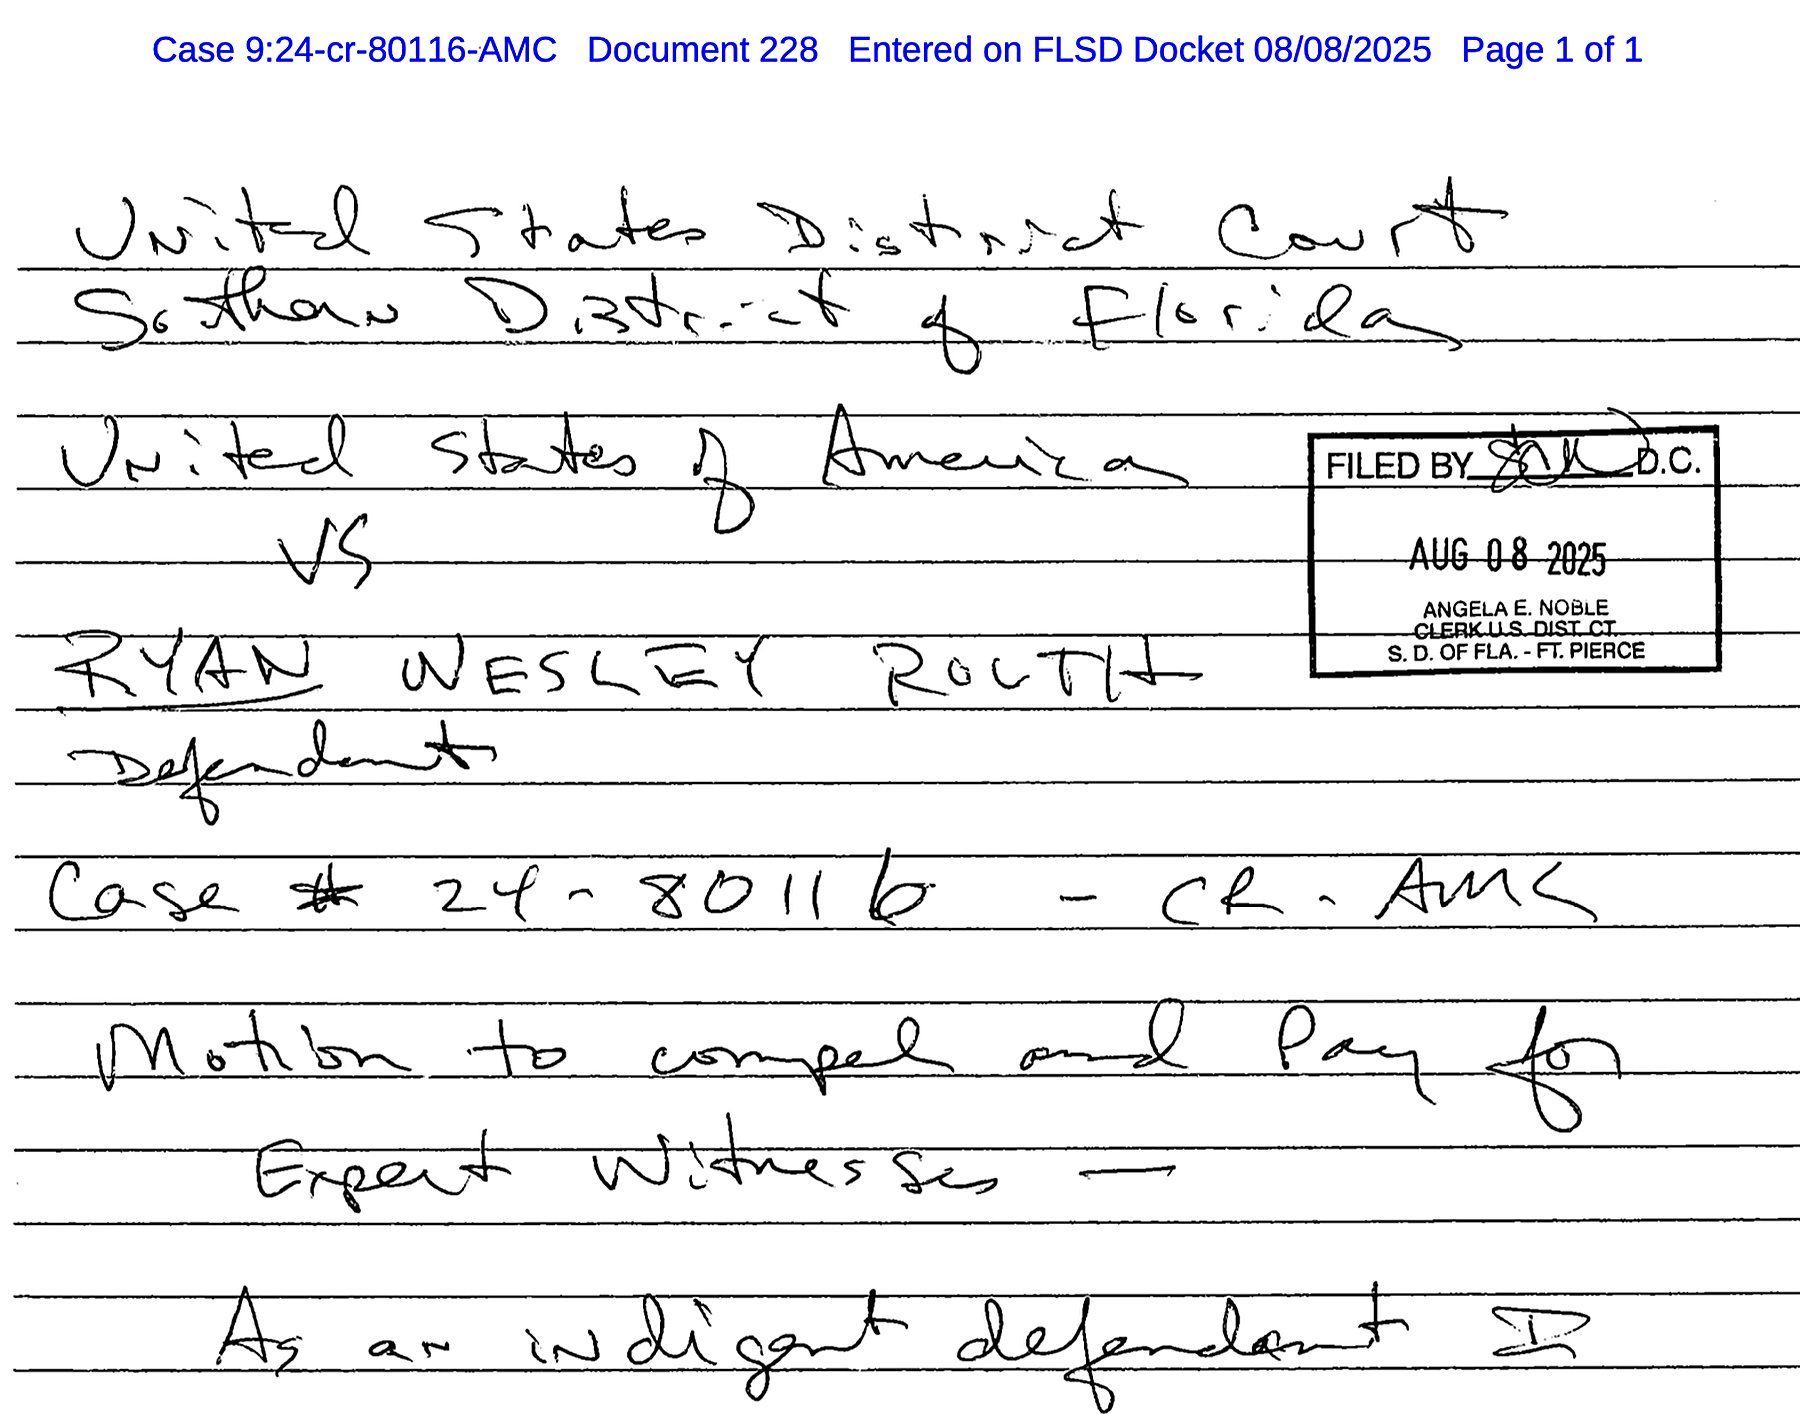 Case 9:24-cr-80116-AMC Document 228 Entered on FLSD Docket 08/08/2025 Page 1 of 1
United States District Court
Southern District of Florida
United States of America
FILED BY D.C.
VS
AUG 08 2025
ANGELA E. NOBLE
CLERK U.S. DIST. CT.
S. D. OF FLA. - FT. PIERCE
RYAN WESLEY ROUTH
Defendant
Case # 24-80116 - CR - AMC
Motion to compel and Pay for
Expert Witnesses —
As an indigent defendant I